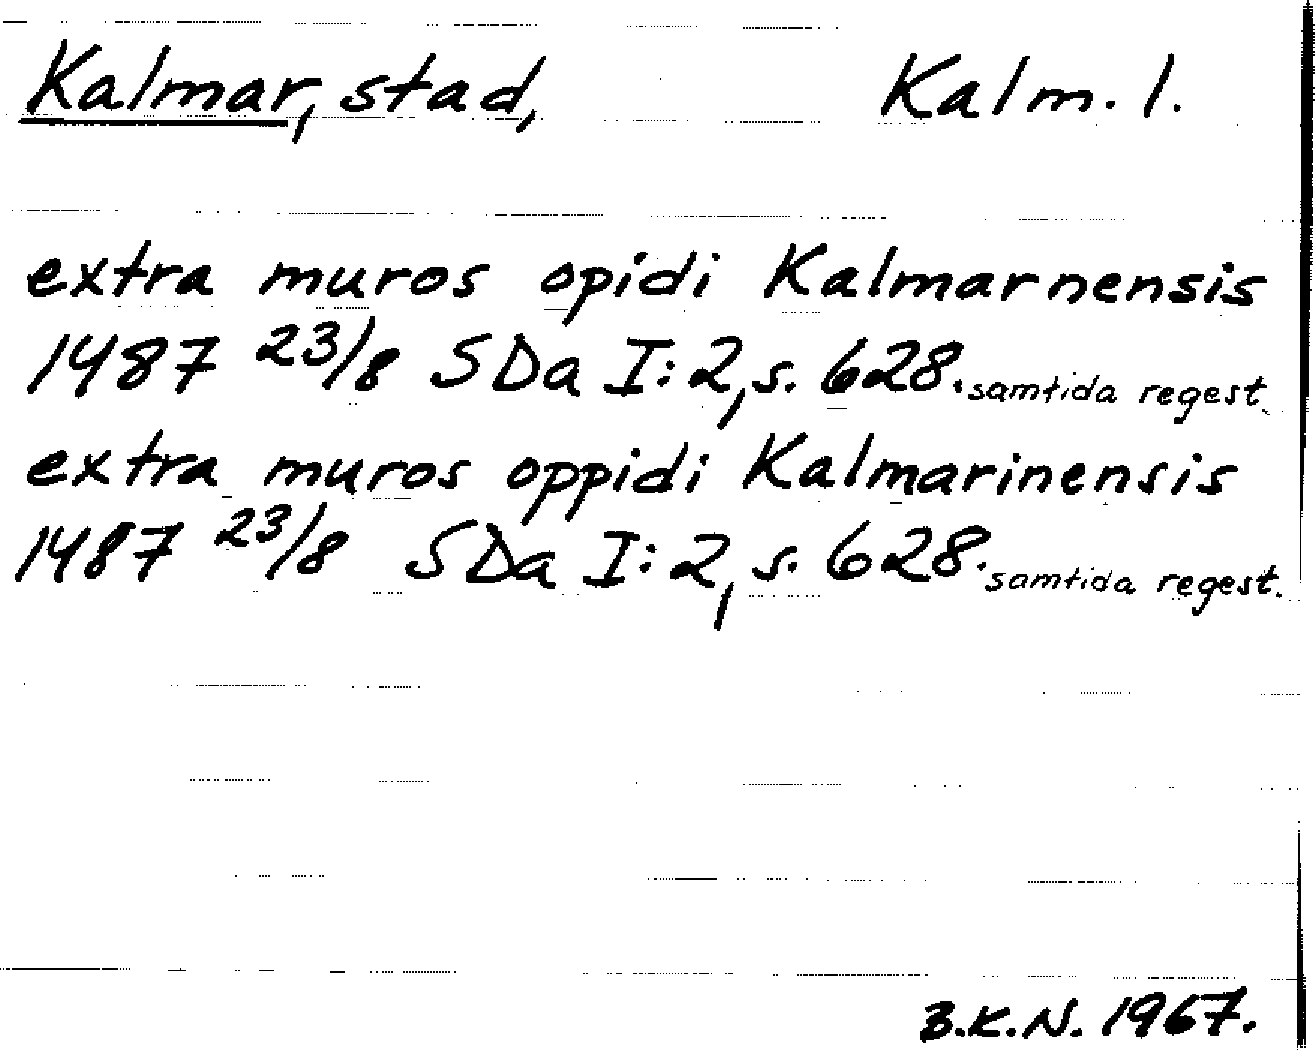 Kalmar, stad, Kalm. l.
extra muros opidi Kalmarnensis
1487 23/8 SDa I:2, s. 628. samtida regest.
extra muros oppidi Kalmarinensis
1487 23/8 SDa I:2, s. 628. samtida regest.
B.K.N. 1967.